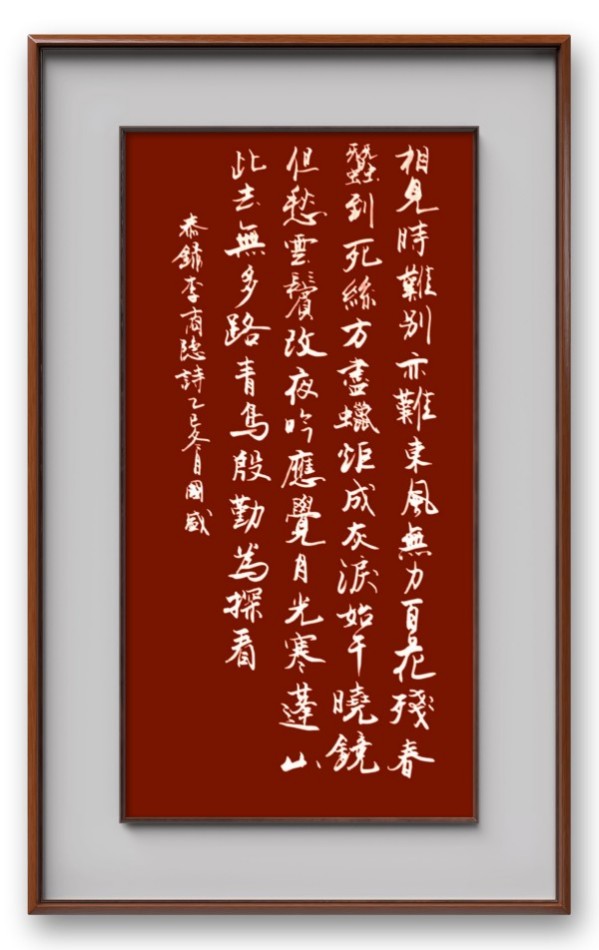 相見時難別亦難東風無力百花殘春
蠶到死絲方盡蠟炬成灰淚始干曉鏡
但愁雲鬢改夜吟應覺月光寒蓬山
此去無多路青鳥殷勤為探看
恭錄李商隱詩乙巳冬月國威